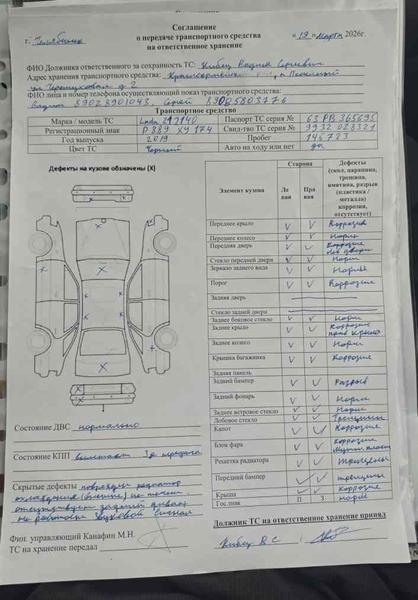 Соглашение
о передаче транспортного средства
на ответственное хранение
г. Челябинск
«19» марта 2026г.
ФИО Должника ответственного за сохранность ТС:
Адрес хранения транспортного средства:
д. 2
ФИО лица и номер телефона осуществляющий показ транспортного средства:
Вадим 89028901043, Сергей 89005803776
Транспортное средство
Марка / модель ТС Lada 217140 Паспорт ТС серия № 63 РВ 365695
Регистрационный знак Р 889 ХУ 174 Свид-тво ТС серия № 9932 028321
Год выпуска 2019 Пробег 145733
Цвет ТС Черный Авто на ходу или нет да
Дефекты на кузове обозначены (Х)
Элемент кузова Сторона Ле вая Пра вая Дефекты (скол, царапина, трещина, вмятина, разрыв (пластика / металла) коррозия, отсутствует)
Переднее крыло V V Коррозия
Переднее колесо V V Норма
Передняя дверь V V Коррозия
Стекло передней двери V V Норм
Зеркало заднего вида V V Норма
Порог V V Коррозия
Задняя дверь
Стекло задней двери
Заднее боковое стекло V V Норм
Заднее крыло V V Коррозия
Заднее колесо V V Норм
Крышка багажника V V Коррозия
Задняя панель
Задний бампер V V Разрыв
Задний фонарь V V Норм
Заднее ветровое стекло V V Норм
Лобовое стекло V V Трещины
Капот V V Коррозия
Блок фара V V
Решетка радиатора V V Трещины
Передний бампер V V трещины
Крыша V V Коррозия
Гос.знак П З норм
Состояние ДВС нормально
Состояние КПП вылетает 3я передача
Скрытые дефекты поврежден радиатор
охлаждения
отсутствует задний диван,
не работает звуковой сигнал
Фин. управляющий Канафин М.Н.
ТС на хранение передал
Должник ТС на ответственное хранение принял